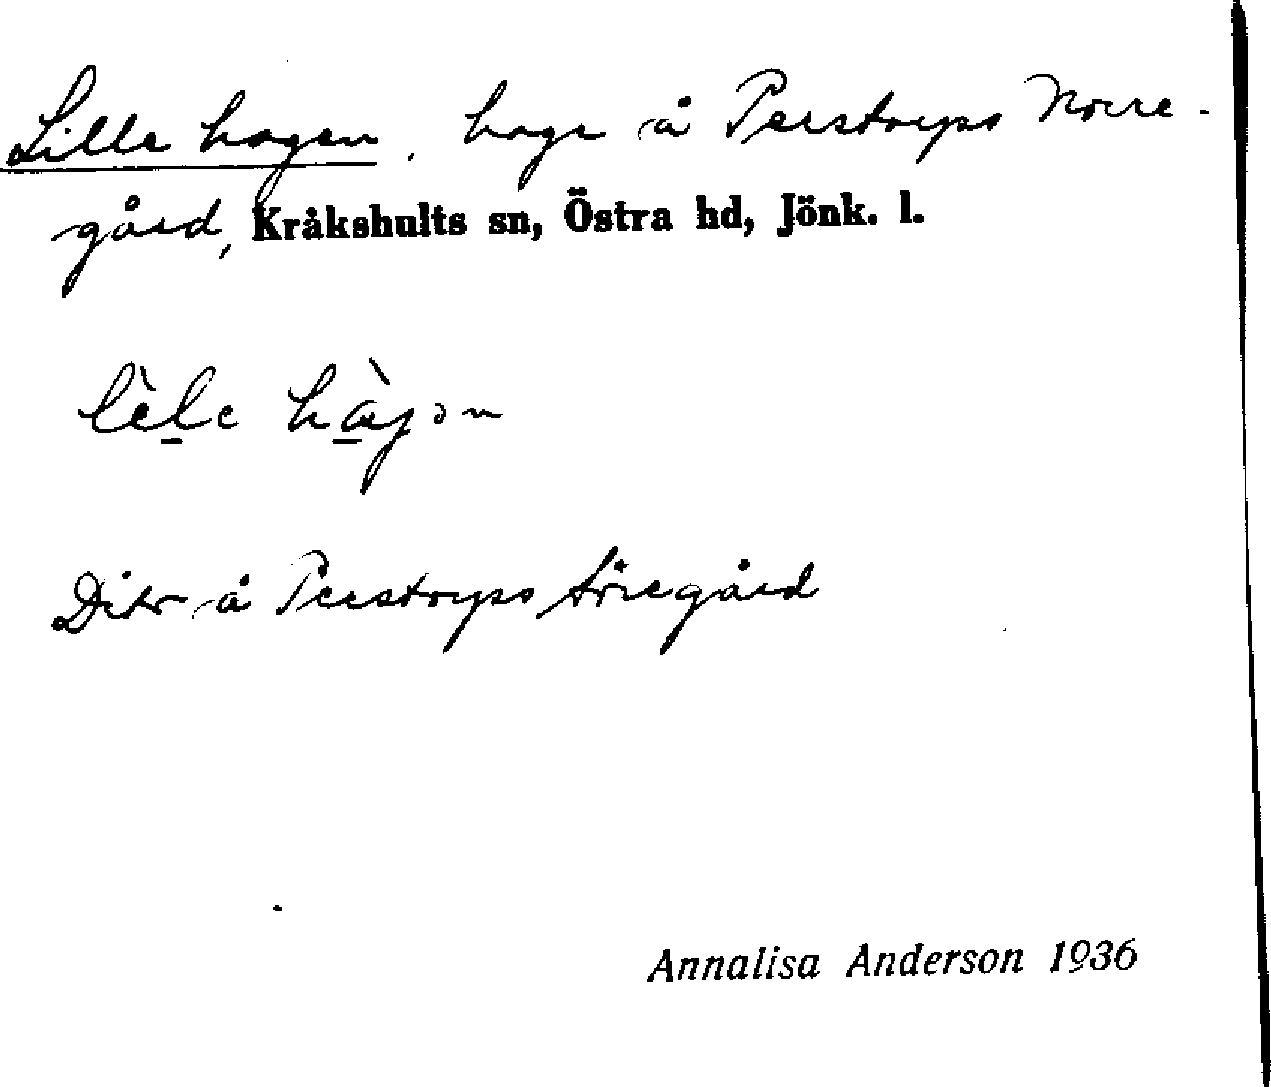 Lille hagen, hage å Perstorps Norre-
gård, Kråkshults sn, Östra hd, Jönk. l.
lèle hàgən
Dito å Perstorps Söregård
Annalisa Anderson 1936